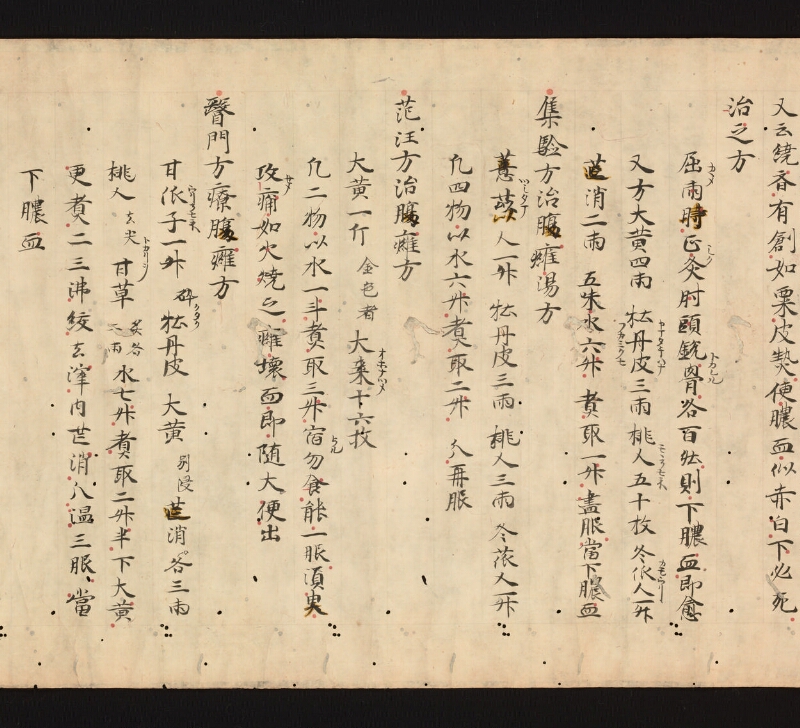 又云繞脊有創如粟皮𤍠便膿血似赤白下必死
治之方
屈兩肘正灸肘頭銳骨各百壯則下膿血即愈
又方大黃四兩 牡丹皮三兩 桃人五十枚 冬瓜人一升
芒消二兩 五味水六升 煮取一升盡服當下膿血
集驗方治腸癰湯方
薏苡人一升 牡丹皮三兩 桃人三兩 冬瓜人一升
凡四物以水六升煮取二升 分再服
范汪方治腸癰方
大黃一斤 金色者 大棗十六枚
凡二物以水一斗煮取三升宿勿食能一服須臾
攻痛如火燒之癰壞血即随大便出
醫門方療腸癰方
甘瓜子一升 碎 牡丹皮 大黃 別浸 芒消各三兩
桃人 去尖 甘草 炙各二兩 水七升煮取二升半下大黃
更煮二三沸絞去滓內芒消分溫三服當
下膿血